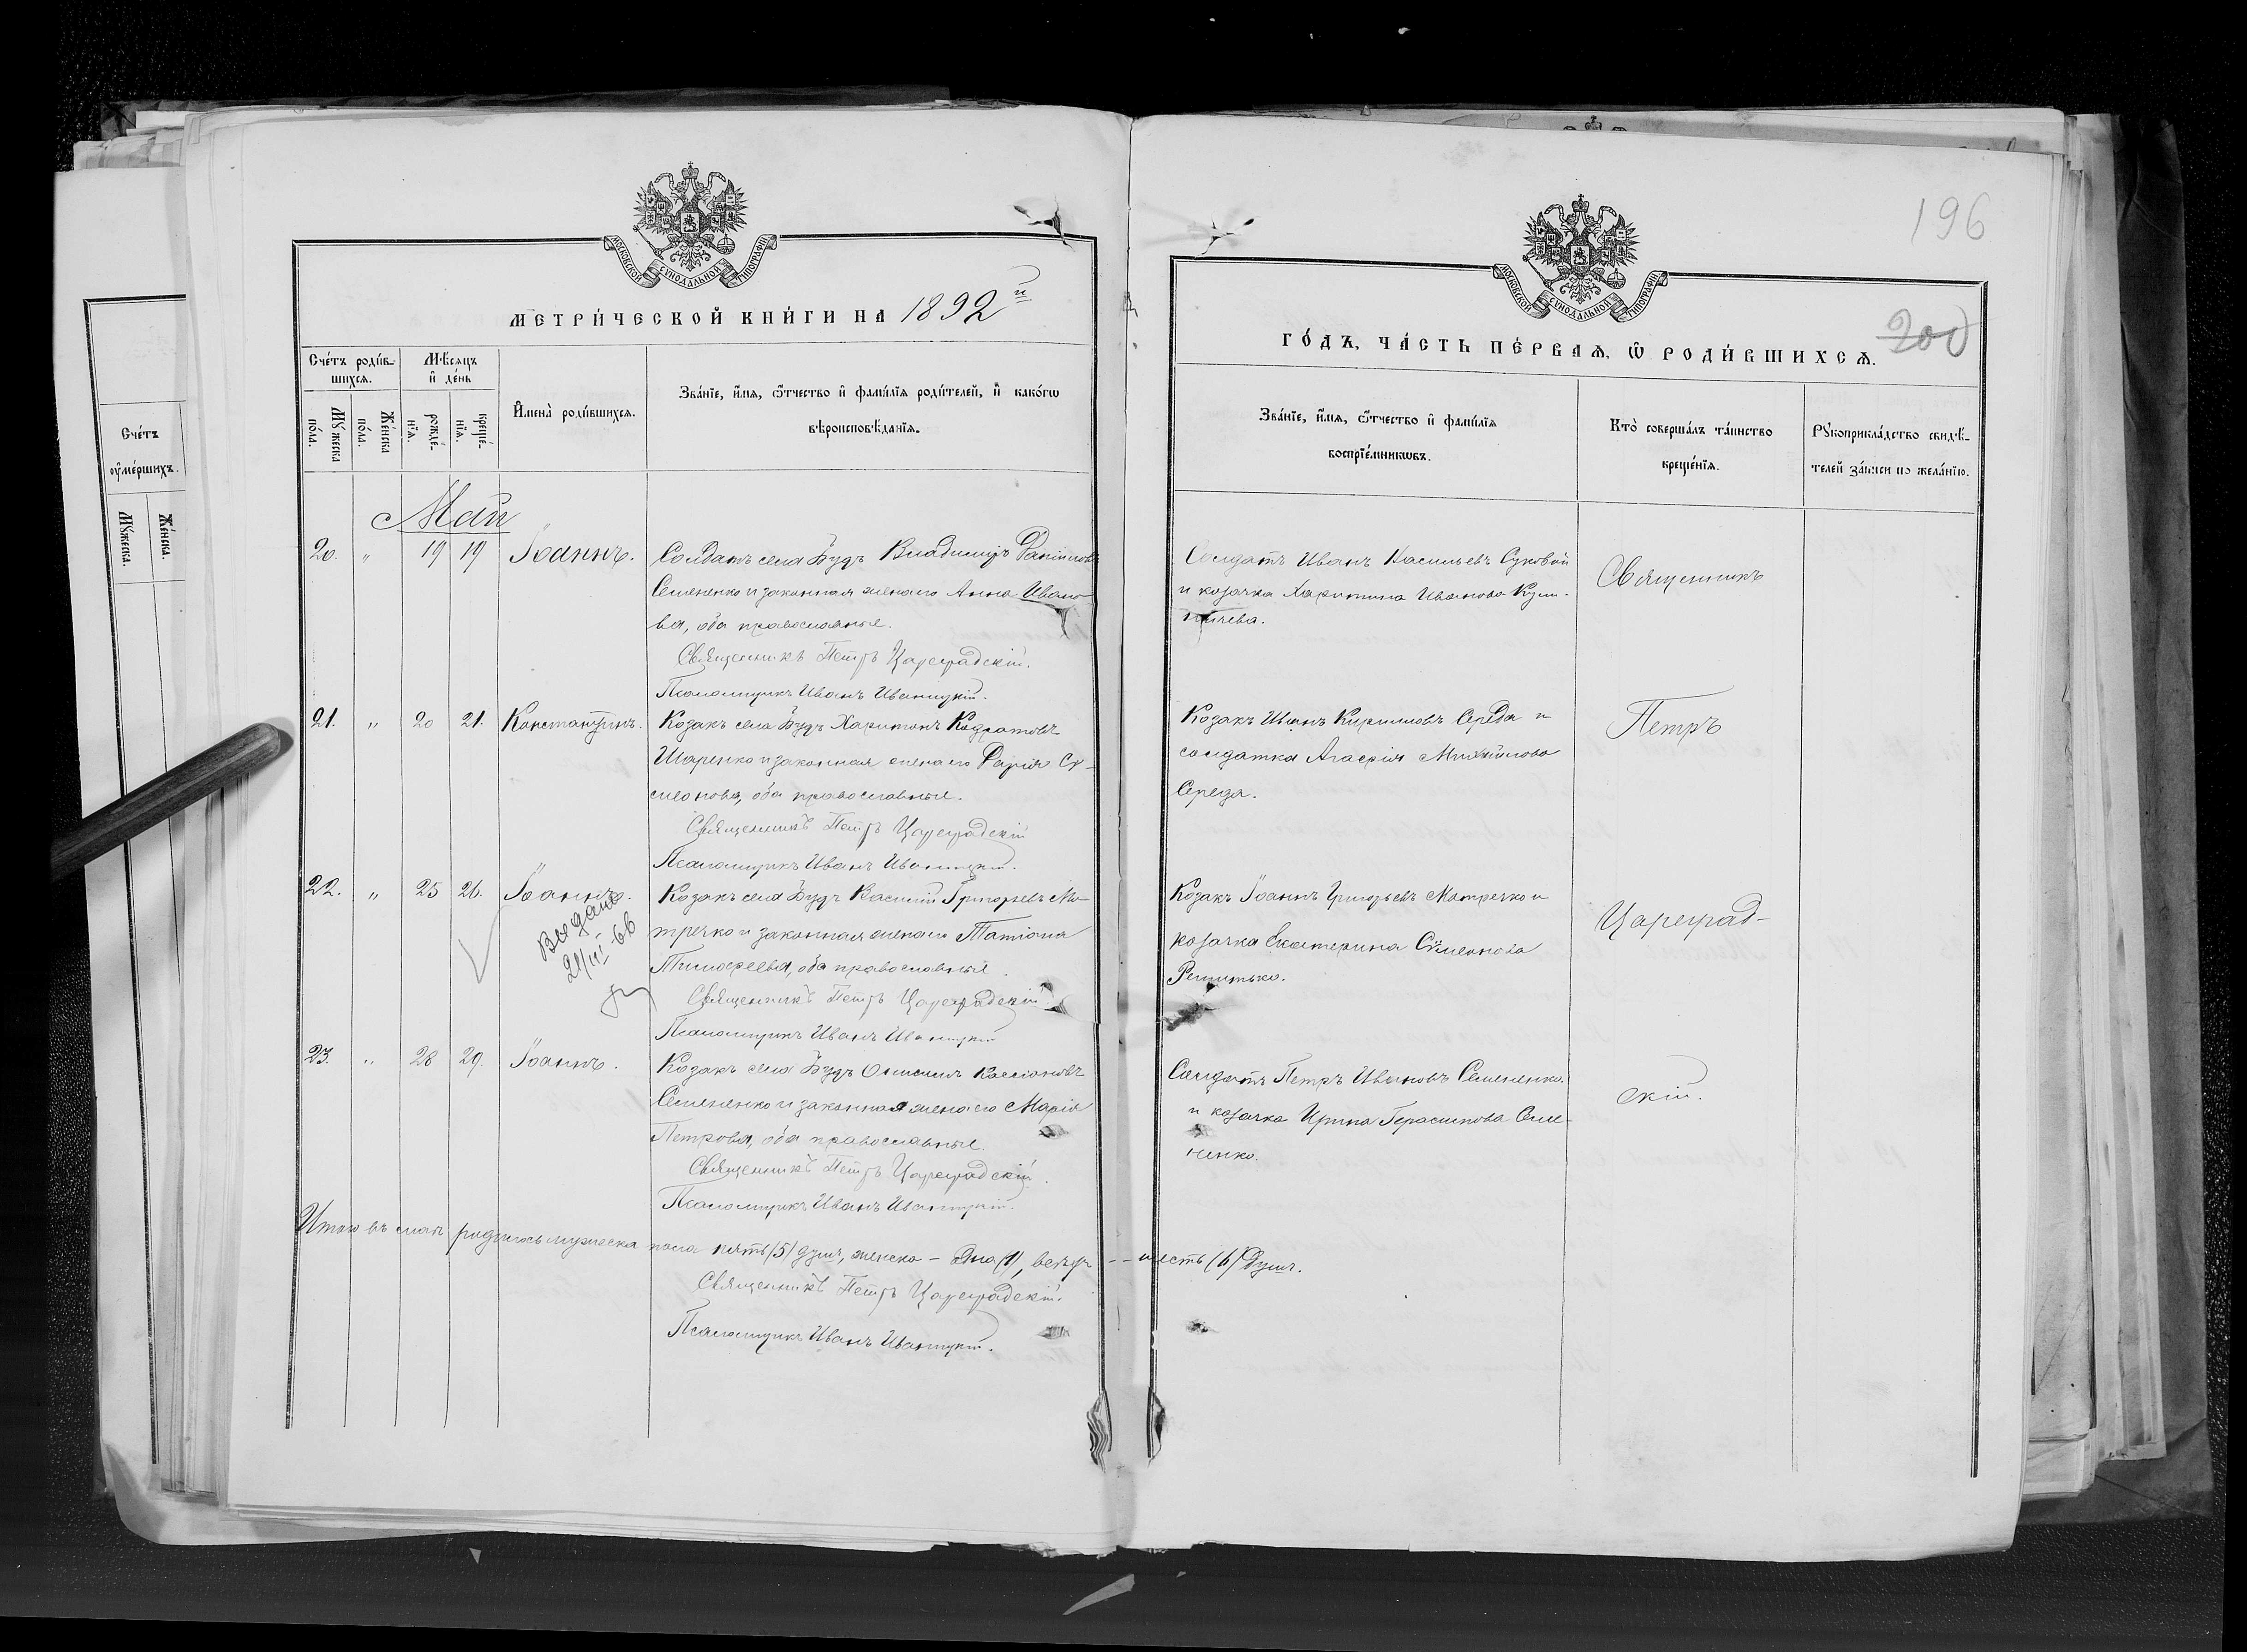 196
200
МОСКОВСКОЙ СѴНОДАЛЬНОЙ ТИПОГРАФІИ
МОСКОВСКОЙ СѴНОДАЛЬНОЙ ТИПОГРАФІИ
МЕТРИ́ЧЕСКОЙ КНИ́ГИ НА 1892й
ГО́ДЪ, ЧА́СТЬ ПЕ́РВАѦ, Ѽ РОДИ́ВШИХСѦ.
Сче́тъ роди́в-
шихсѧ.
Мѣ́сѧцъ
и҆ де́нь
Мꙋ́жеска
по́ла.
Же́нска
по́ла.
рожде́-
нїѧ.
креще́-
нїѧ.
И҆мена̀ роди́вшихсѧ.
Зва́нїе, и҆́мѧ, ѻ҆́тчество и҆ фамѝлїѧ роди́телей, и҆ како́гѡ
вѣроисповѣ́данїѧ.
Зва́нїе, и҆́мѧ, ѻ҆́тчество и҆ фамѝлїѧ
воспрїе́мникѡвъ.
Кто̀ соверша́лъ та́инство
креще́нїѧ.
Рꙋкоприкла́дство свидѣ́-
телей за́писи по жела́нїю.
Сче́тъ
ѹ҆ме́ршихъ.
Мꙋ́жеска.
Же́нска.
Май
20. " 19 19 Іоаннъ. Солдатъ села Будъ Владимиръ Даніиловъ
Семененко и законная жена его Анна Ивано-
ва, оба православные.
Священникъ Петръ Цареградскій.
Псаломщикъ Иванъ Иваницкій.
Солдатъ Иванъ Васильевъ Суковой
и козачка Харитина Иванова
Священникъ
21. " 20 21. Константинъ. Козакъ села Будъ Харитонъ Кодратовъ
Шаренко и законная жена его Дарія Сѵ-
меонова, оба православные.
Священникъ Петръ Цареградскій
Псаломщикъ Иванъ Иваницкій.
Козакъ Иванъ Кирилловъ Середа и
солдатка Агафія Михайлова
Середа.
Петръ
22. " 25 26. Іоаннъ. Козакъ села Будъ Василій Григорьевъ Ма-
тречко и законная жена его Татіана
Тимофеева, оба православные.
Священникъ Петръ Цареградскій
Псаломщикъ Иванъ Иваницкій
Выдано
21/II-66
Козакъ Іоаннъ Григорьевъ Матречко и
козачка Екатерина Сѵмеонова
Решитько.
Цареград-
23. " 28 29. Іоаннъ. Козакъ села Будъ Онисимъ Кассіановъ
Семененко и законная жена его Марія
Петрова, оба православные.
Священникъ Петръ Цареградскій.
Псаломщикъ Иванъ Иваницкій.
Солдатъ Петръ Ивановъ Семененко
и козачка Ирина Герасимова Семе-
ненко.
скій.
Итого въ маѣ родилось мужеска пола пять (5) душъ, женска - одна (1), всего - - шесть (6) душъ.
Священникъ Петръ Цареградскій.
Псаломщикъ Иванъ Иваницкій.